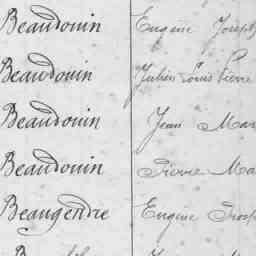 Beaudouin Eugène Joseph
Beaudouin Julien Louis Pierre
Beaudouin Jean Mar
Beaudouin Pierre Ma
Beaugendre Eugène